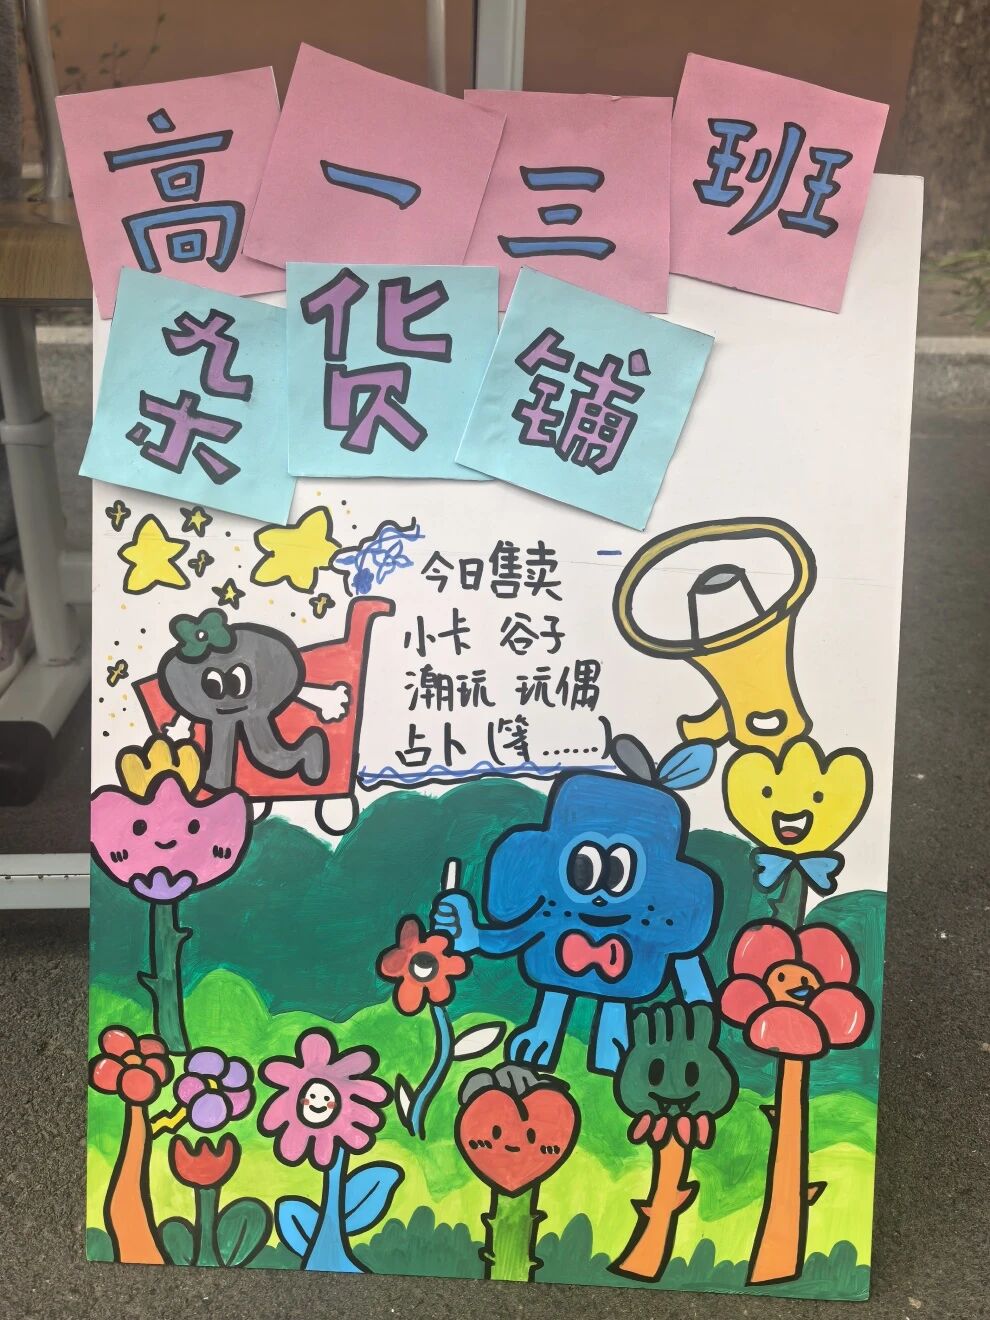 高一三班
杂货铺
今日售卖
小卡 谷子
潮玩 玩偶
占卜(等……)